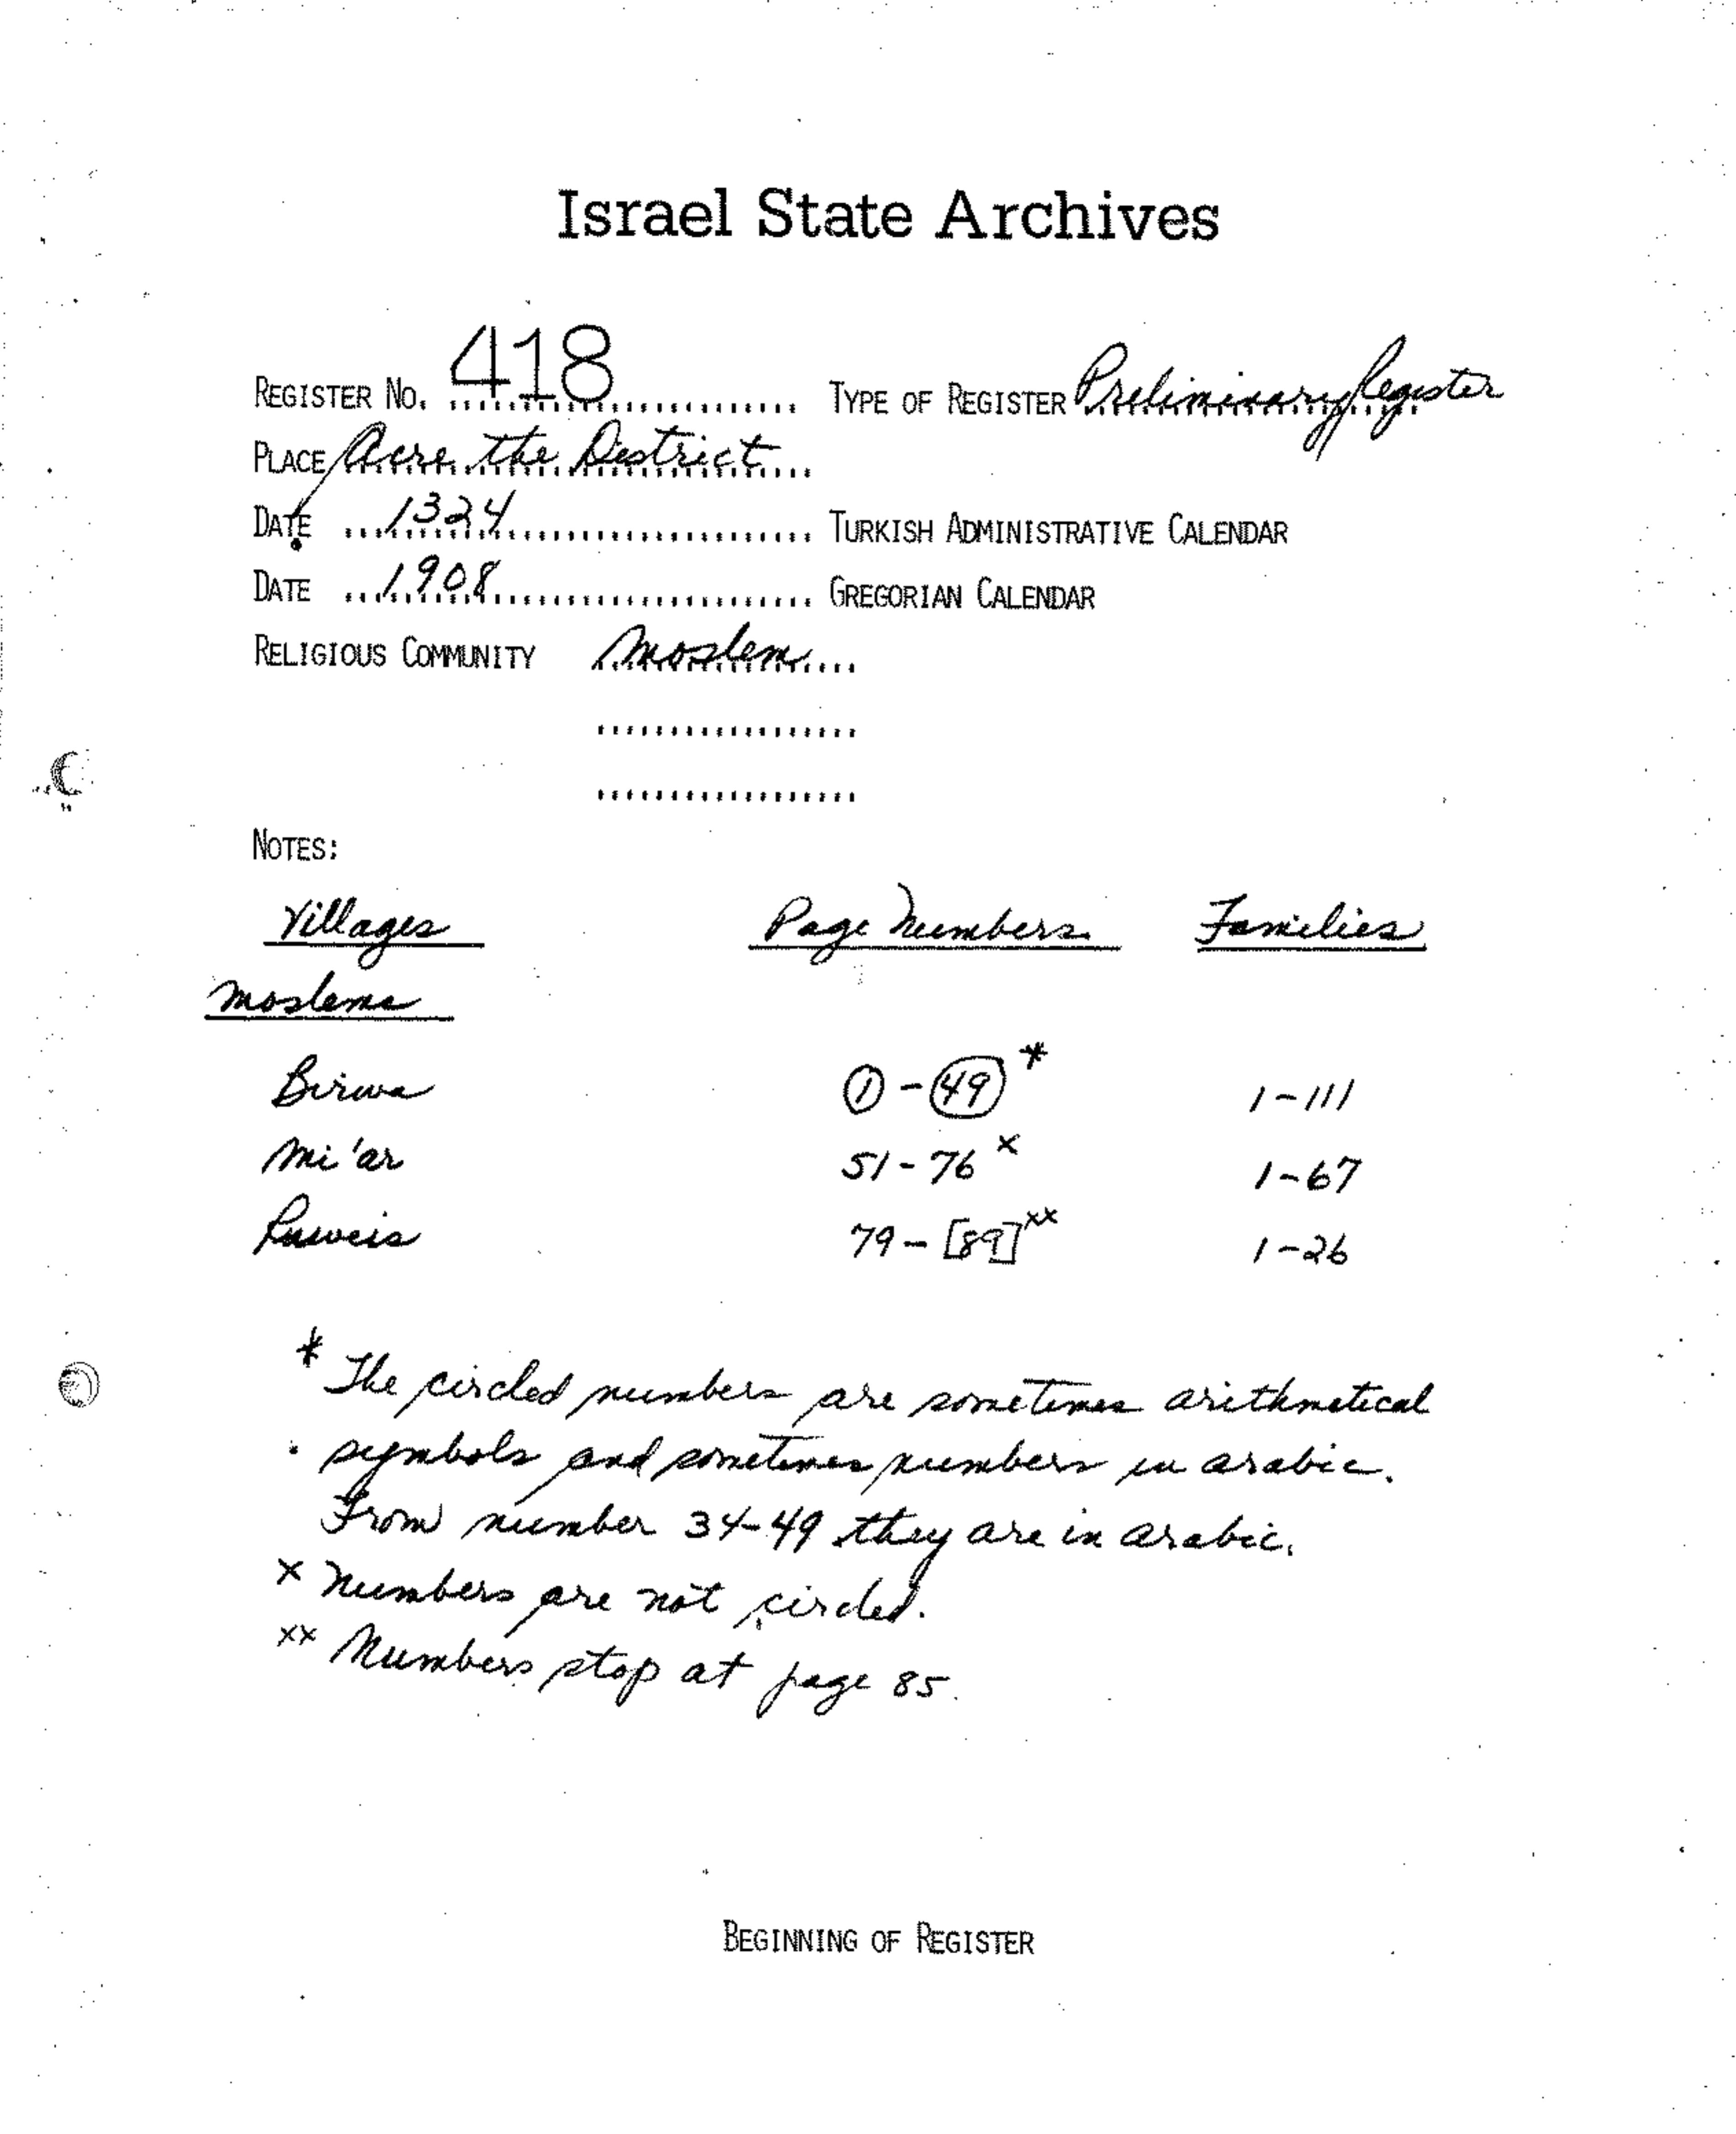 Israel State Archives
REGISTER No. 418 TYPE OF REGISTER Preliminary Register
PLACE Acre, the District
DATE 1324 TURKISH ADMINISTRATIVE CALENDAR
DATE 1908 GREGORIAN CALENDAR
RELIGIOUS COMMUNITY Moslem
NOTES:
Villages Page Numbers Families
Moslems
Birwa ① - ㊾ * 1-111
Mi'ar 51-76 x 1-67
Ruweis 79-[89] xx 1-26
* The circled numbers are sometimes arithmetical
symbols and sometimes numbers in arabic.
From number 34-49 they are in arabic.
x Numbers are not circled.
xx Numbers stop at page 85.
BEGINNING OF REGISTER